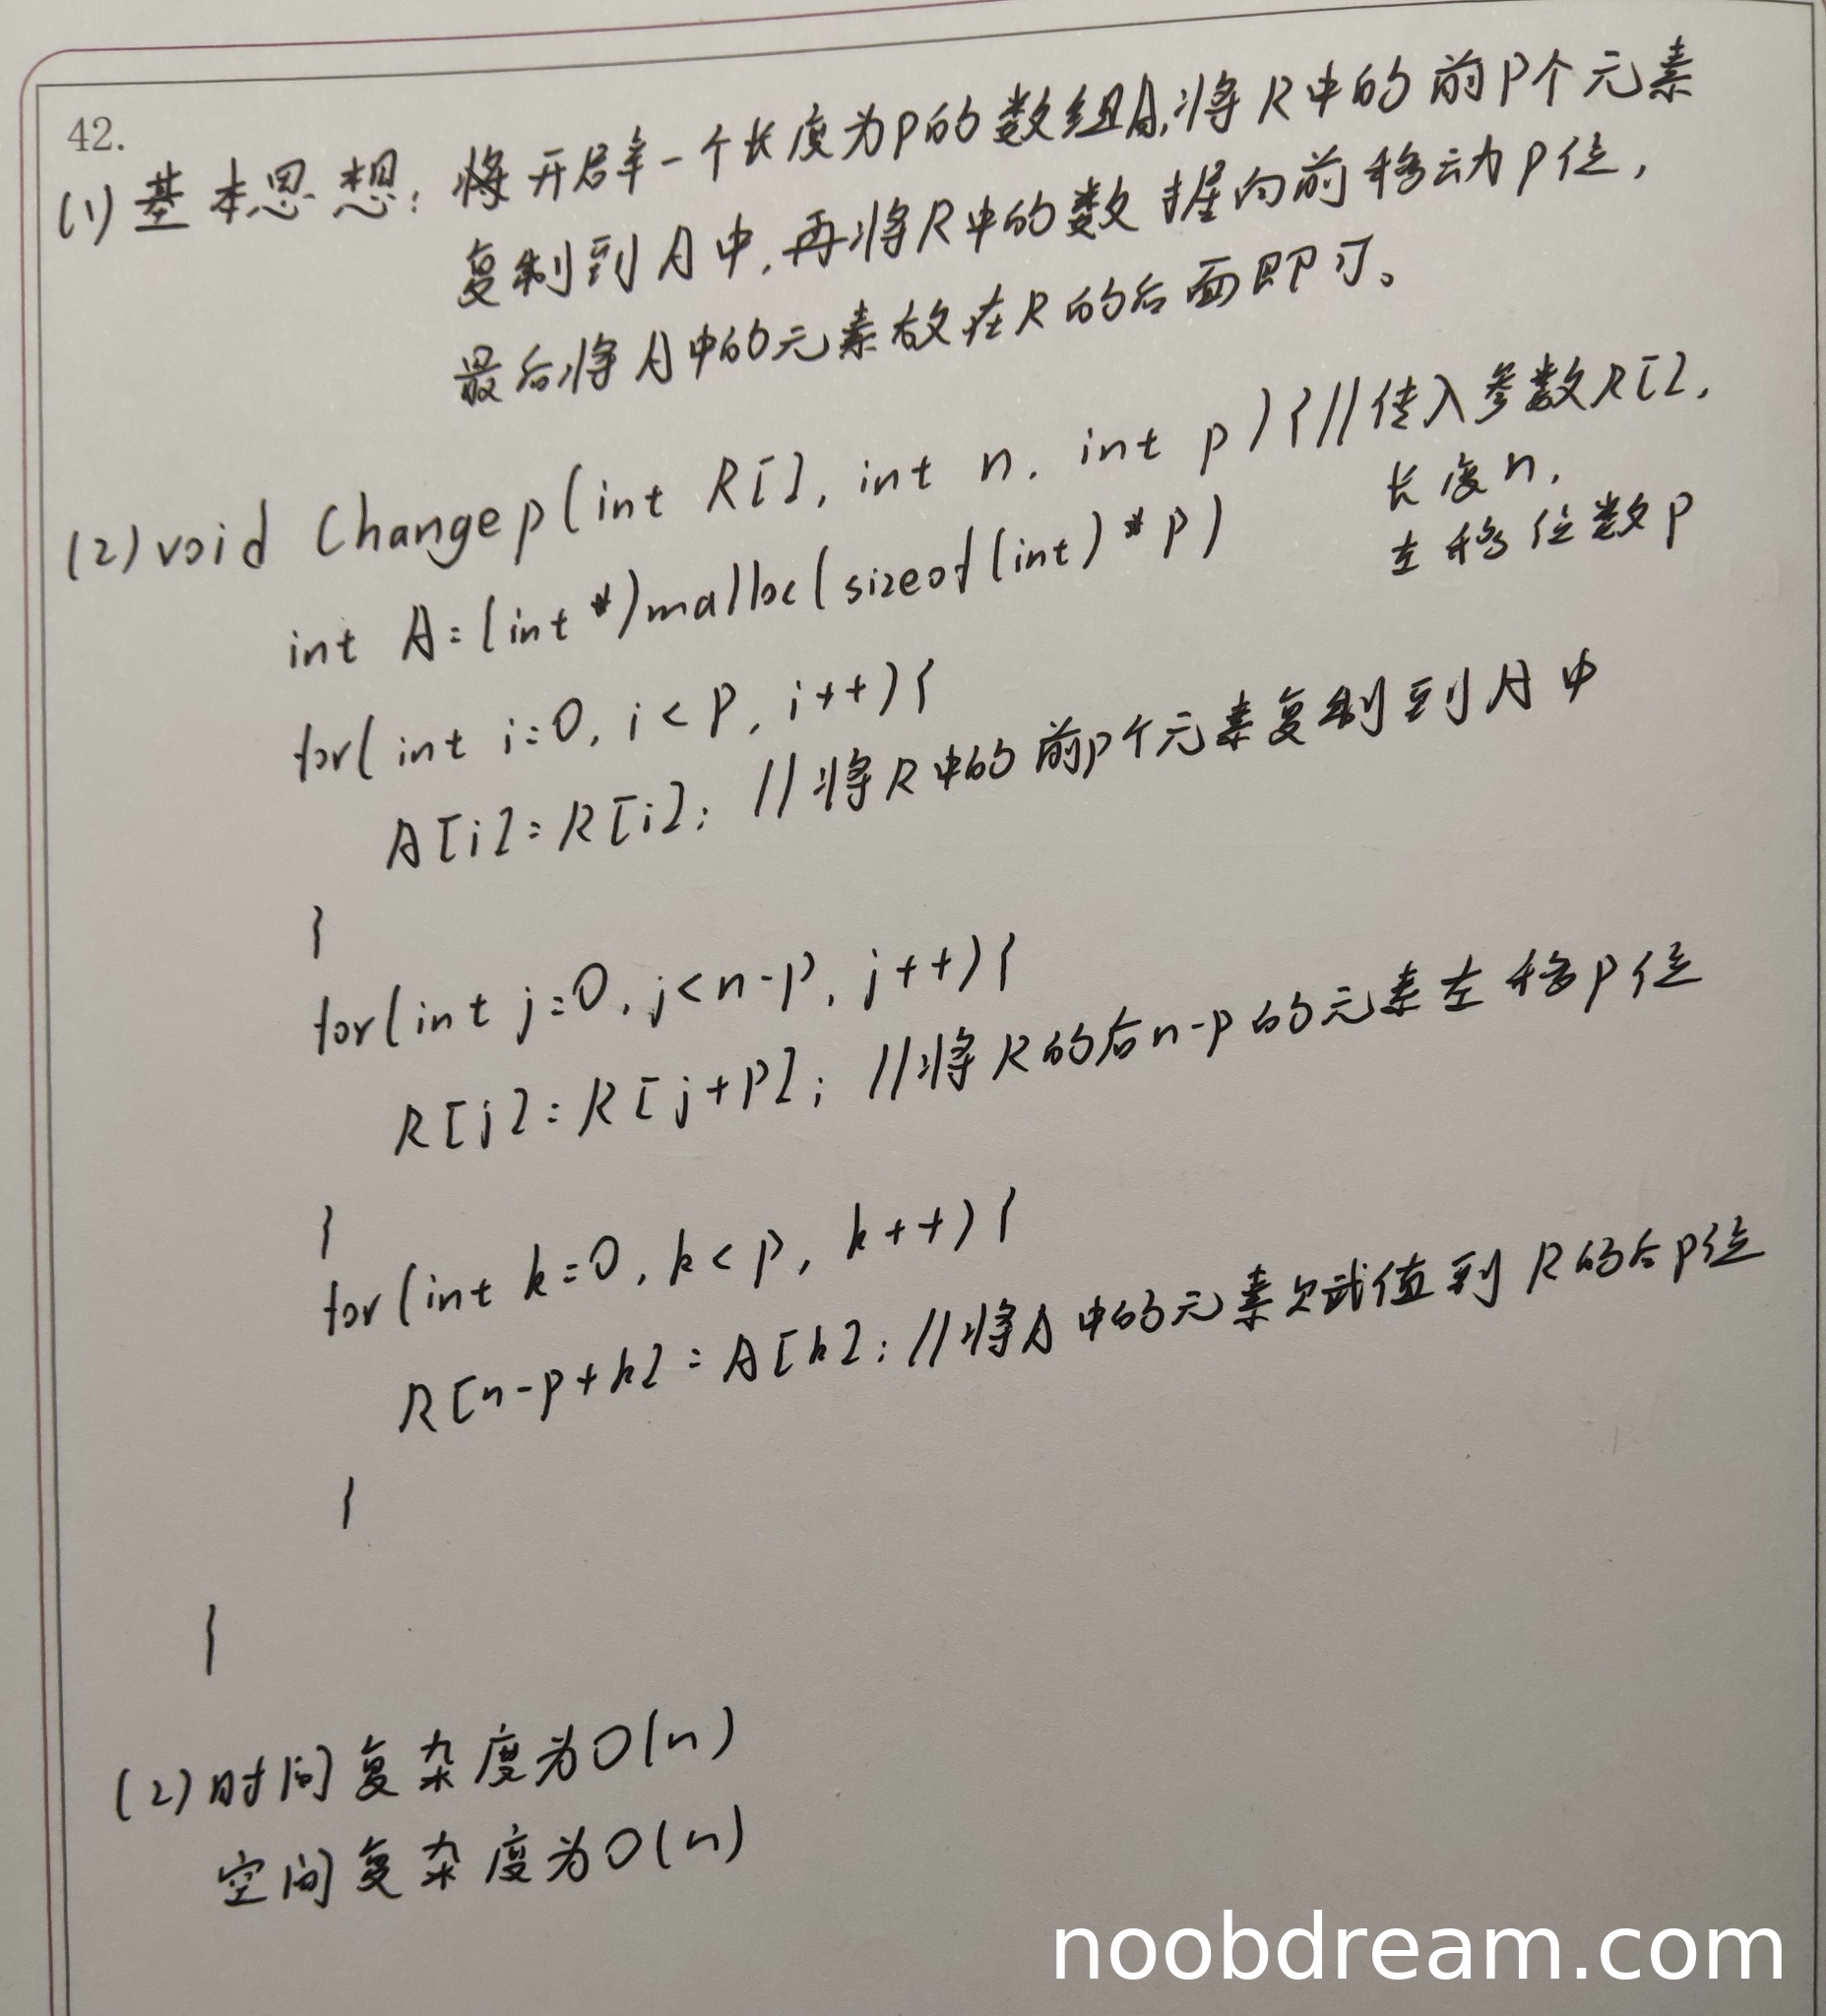 42.
(1) 基本思想: 将开辟一个长度为P的数组A,将R中的前P个元素
复制到A中,再将R中的数据向前移动P位,
最后将A中的元素放在R的后面即可。
(2) void Changep(int R[], int n, int p){//传入参数R[],
长度n,
左移位数p
int A=(int*)malloc(sizeof(int)*p)
for(int i=0, i<p, i++){
A[i]=R[i]; //将R中的前p个元素复制到A中
}
for(int j=0, j<n-p, j++){
R[j]=R[j+p]; //将R的后n-p的元素左移p位
}
for(int k=0, k<p, k++){
R[n-p+k]=A[k]; //将A中的元素赋值到R的后p位
}
}
(2) 时间复杂度为O(n)
空间复杂度为O(n)
noobdream.com